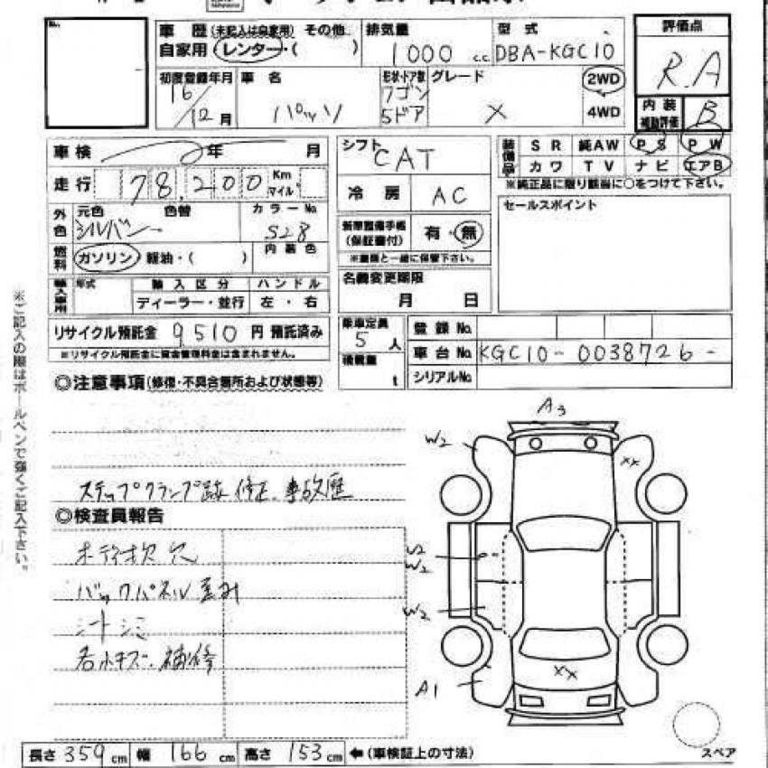 車 歴 (未記入は自家用) その他 排気量 型 式 評価点
自家用 レンター・( ) 1000 c.c. DBA-KGC10 R.A
初度登録年月 車 名 形状・ドア数 グレード 2WD
16/12月 パッソ ワゴン 5ドア X 4WD
内 装 補助評価 B
車 検 年 月
シフト CAT
装備品 S R 純AW P S P W
カ ワ T V ナ ビ エアB
※純正品に限り該当に○をつけて下さい。
走 行 78,200 Km マイル
冷 房 AC
セールスポイント
外色 元色 色替 カラーNo
シルバー S28
新車整備手帳 (保証書付) 有・無
※書類と一緒に保管下さい。
燃料 ガソリン 軽油・( ) 内 装 色
名義変更期限
月 日
輸入車用 年式 輸 入 区 分 ハ ン ド ル
ディーラー・並行 左 ・ 右
リサイクル預託金 9510 円 預託済み
※リサイクル預託金に資金管理料金は含まれません。
乗車定員 5 人
積載量 t
登 録 No.
車 台 No. KGC10-0038726-
シリアルNo.
◎注意事項(修復・不具合箇所および状態等)
ステップクランプ跡 修正. 事故歴
◎検査員報告
バックパネル歪み
各小キズ.補修
A3
W2
XX
W2
W2
W2
XX
A1
スペア
長さ 359 cm 幅 166 cm 高さ 153 cm ←(車検証上の寸法)
※ご記入の際はボールペンで強くご記入下さい。